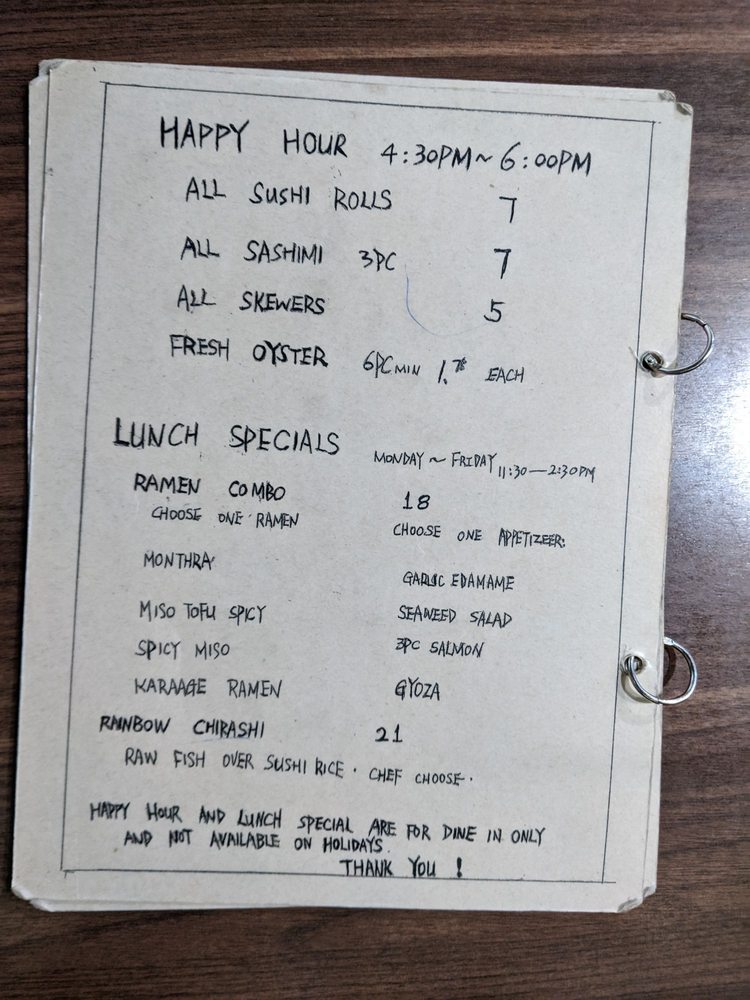 HAPPY HOUR 4:30PM~6:00PM
ALL SUSHI ROLLS 7
ALL SASHIMI 3PC 7
ALL SKEWERS 5
FRESH OYSTER 6PC MIN 1.75 EACH
LUNCH SPECIALS MONDAY ~ FRIDAY 11:30—2:30PM
RAMEN COMBO 18
CHOOSE ONE RAMEN CHOOSE ONE APPETIZEER:
MONTHRA GARLIC EDAMAME
MISO TOFU SPICY SEAWEED SALAD
SPICY MISO 3PC SALMON
KARAAGE RAMEN GYOZA
RAINBOW CHIRASHI 21
RAW FISH OVER SUSHI RICE. CHEF CHOOSE.
HAPPY HOUR AND LUNCH SPECIAL ARE FOR DINE IN ONLY
AND NOT AVAILABLE ON HOLIDAYS.
THANK YOU !